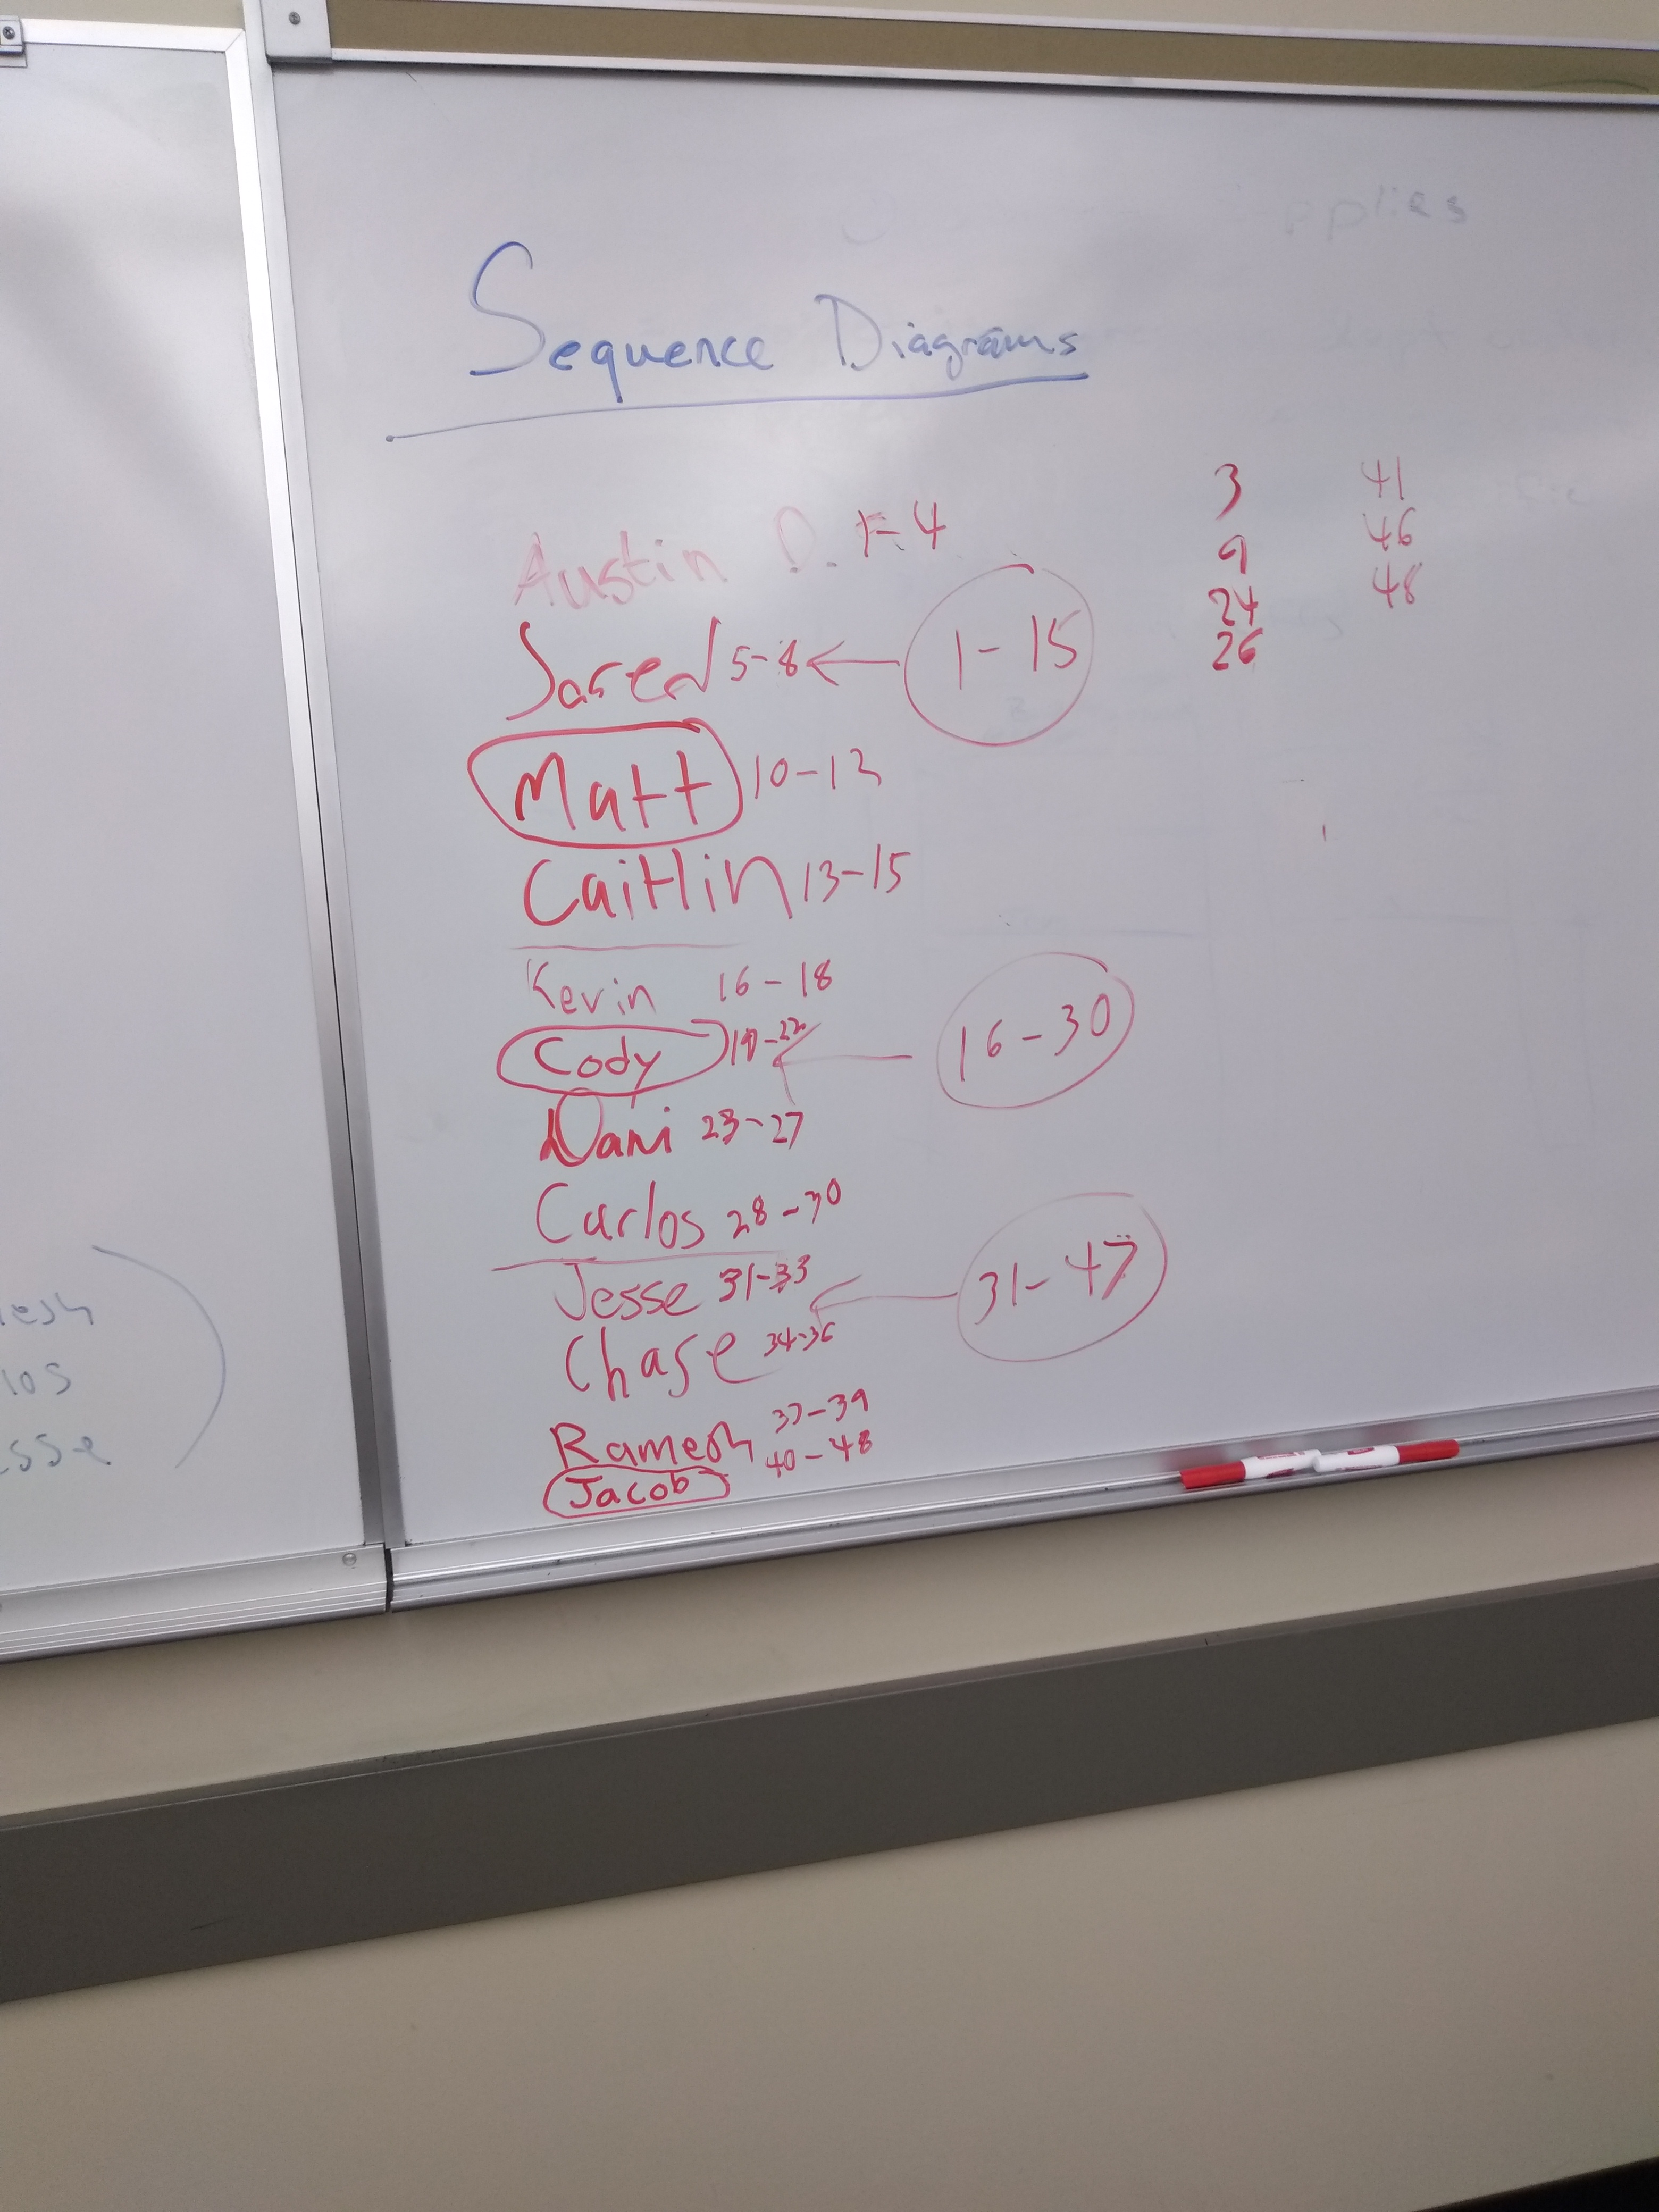 Sequence Diagrams
Austin D. 1-4
Jared 5-8 ← 1-15
Matt 10-12
Caitlin 13-15
Kevin 16-18
Cody 19-22 ← 16-30
Dani 23-27
Carlos 28-30
Jesse 31-33 ← 31-47
Chase 34-36
Ramesh 37-39
Jacob 40-48
3 41
9 46
24 48
26